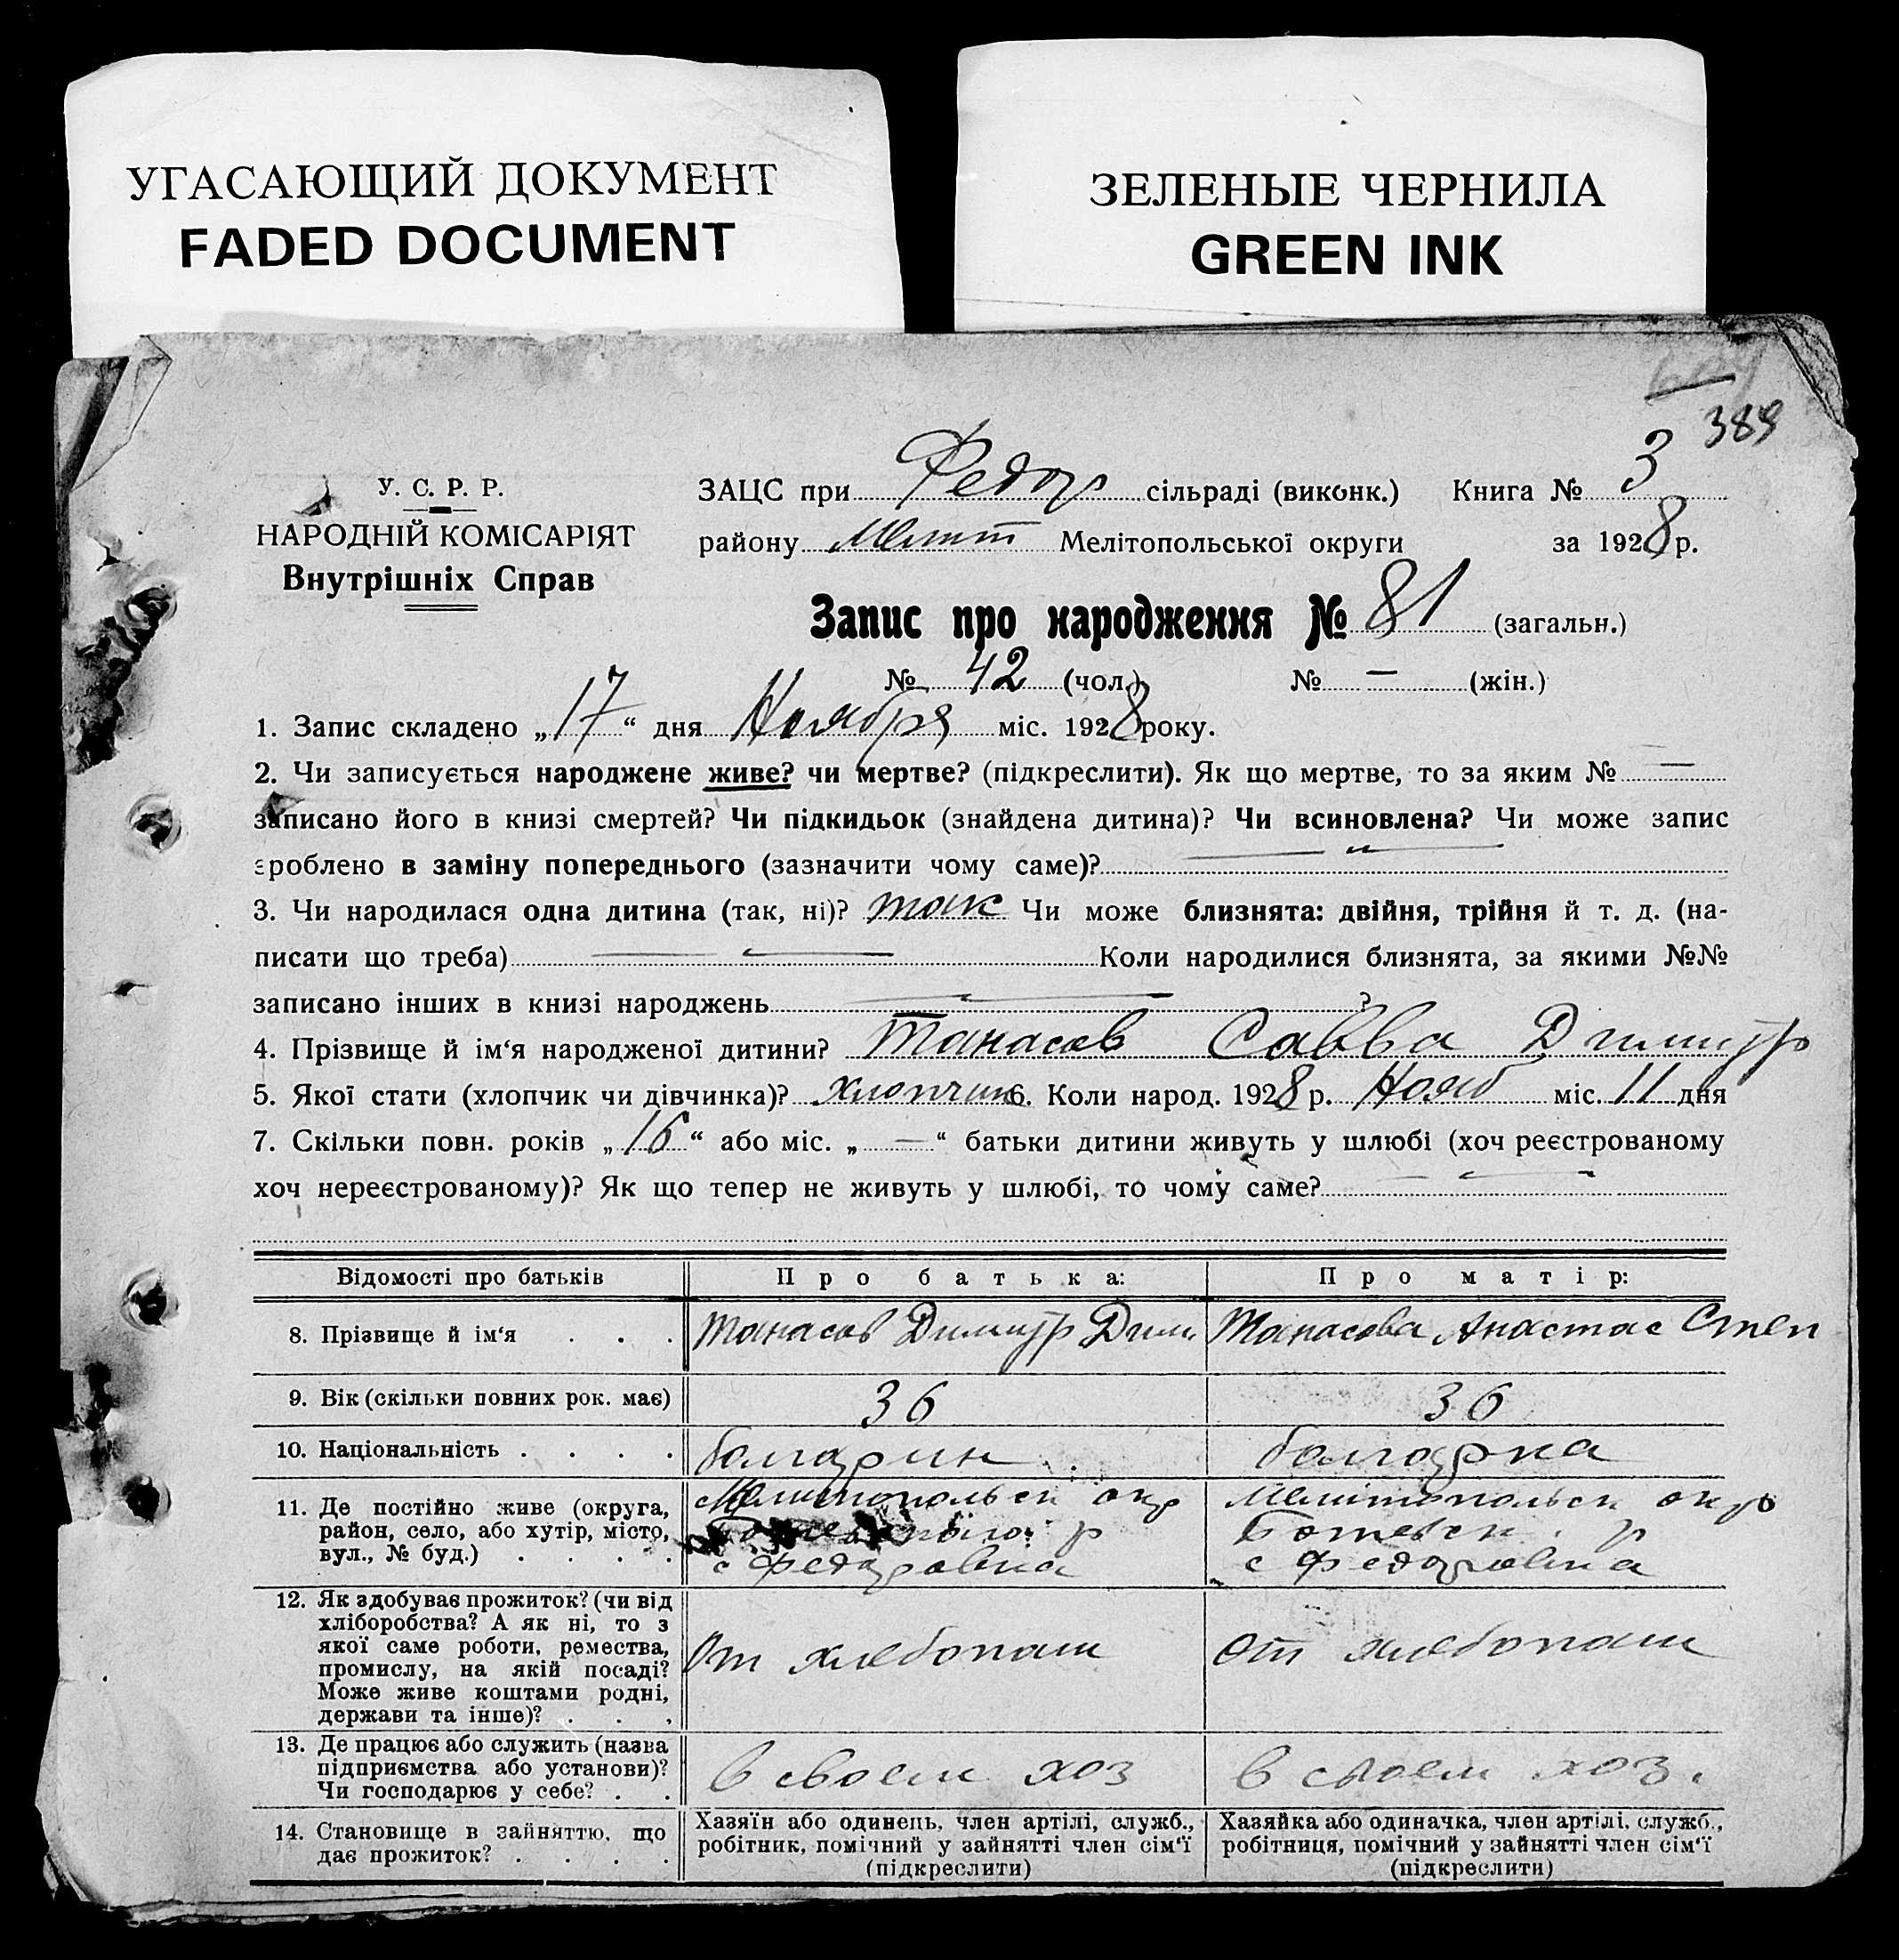 УГАСАЮЩИЙ ДОКУМЕНТ
FADED DOCUMENT
ЗЕЛЕНЫЕ ЧЕРНИЛА
GREEN INK
389
У. С. Р. Р.
НАРОДНІЙ КОМІСАРІЯТ
Внутрішніх Справ
ЗАЦС при Федор сільраді (виконк.) Книга № 3
району Меліт Мелітопольської округи за 1928 р.
Запис про народження № 81 (загальн.)
№ 42 (чол.) № — (жін.)
1. Запис складено „17“ дня Ноября міс. 1928 року.
2. Чи записується народжене живе? чи мертве? (підкреслити). Як що мертве, то за яким № —
записано його в книзі смертей? Чи підкидьок (знайдена дитина)? Чи всиновлена? Чи може запис
зроблено в заміну попереднього (зазначити чому саме)?
3. Чи народилася одна дитина (так, ні)? так Чи може близнята: двійня, трійня й т. д. (на-
писати що треба) Коли народилися близнята, за якими №№
записано інших в книзі народжень ?
4. Прізвище й ім‘я народженої дитини? Танасов Савва Димитр
5. Якої стати (хлопчик чи дівчинка)? хлопчик 6. Коли народ. 1928 р. Нояб міс. 11 дня
7. Скільки повн. років „16“ або міс. „—“ батьки дитини живуть у шлюбі (хоч реєстрованому
хоч нереєстрованому)? Як що тепер не живуть у шлюбі, то чому саме?
Відомості про батьків Про батька: Про матір:
8. Прізвище й ім‘я . . . Танасов Димитр Дим Танасова Анастас Степ
9. Вік (скільки повних рок. має) 36 36
10. Національність . . . . болгарин болгарка
11. Де постійно живе (округа,
район, село, або хутір, місто,
вул., № буд.) . . . .
Мелитопольск окр
р
с Федоровка
Мелітопольск окр
Ботевск. р
с Федоровка
12. Як здобуває прожиток? (чи від
хліборобства? А як ні, то з
якої саме роботи, ремества,
промислу, на якій посаді?
Може живе коштами родні,
держави та інше)? . . .
От хлебопаш От хлебопаш
13. Де працює або служить (назва
підприємства або установи)?
Чи господарює у себе? . .
в своем хоз в своем хоз.
14. Становище в зайняттю, що
дає прожиток? . . . .
Хазяїн або одинець, член артілі, служб.,
робітник, помічний у зайнятті член сім‘ї
(підкреслити)
Хазяйка або одиначка, член артілі, служб.,
робітниця, помічний у зайнятті член сім‘ї
(підкреслити)